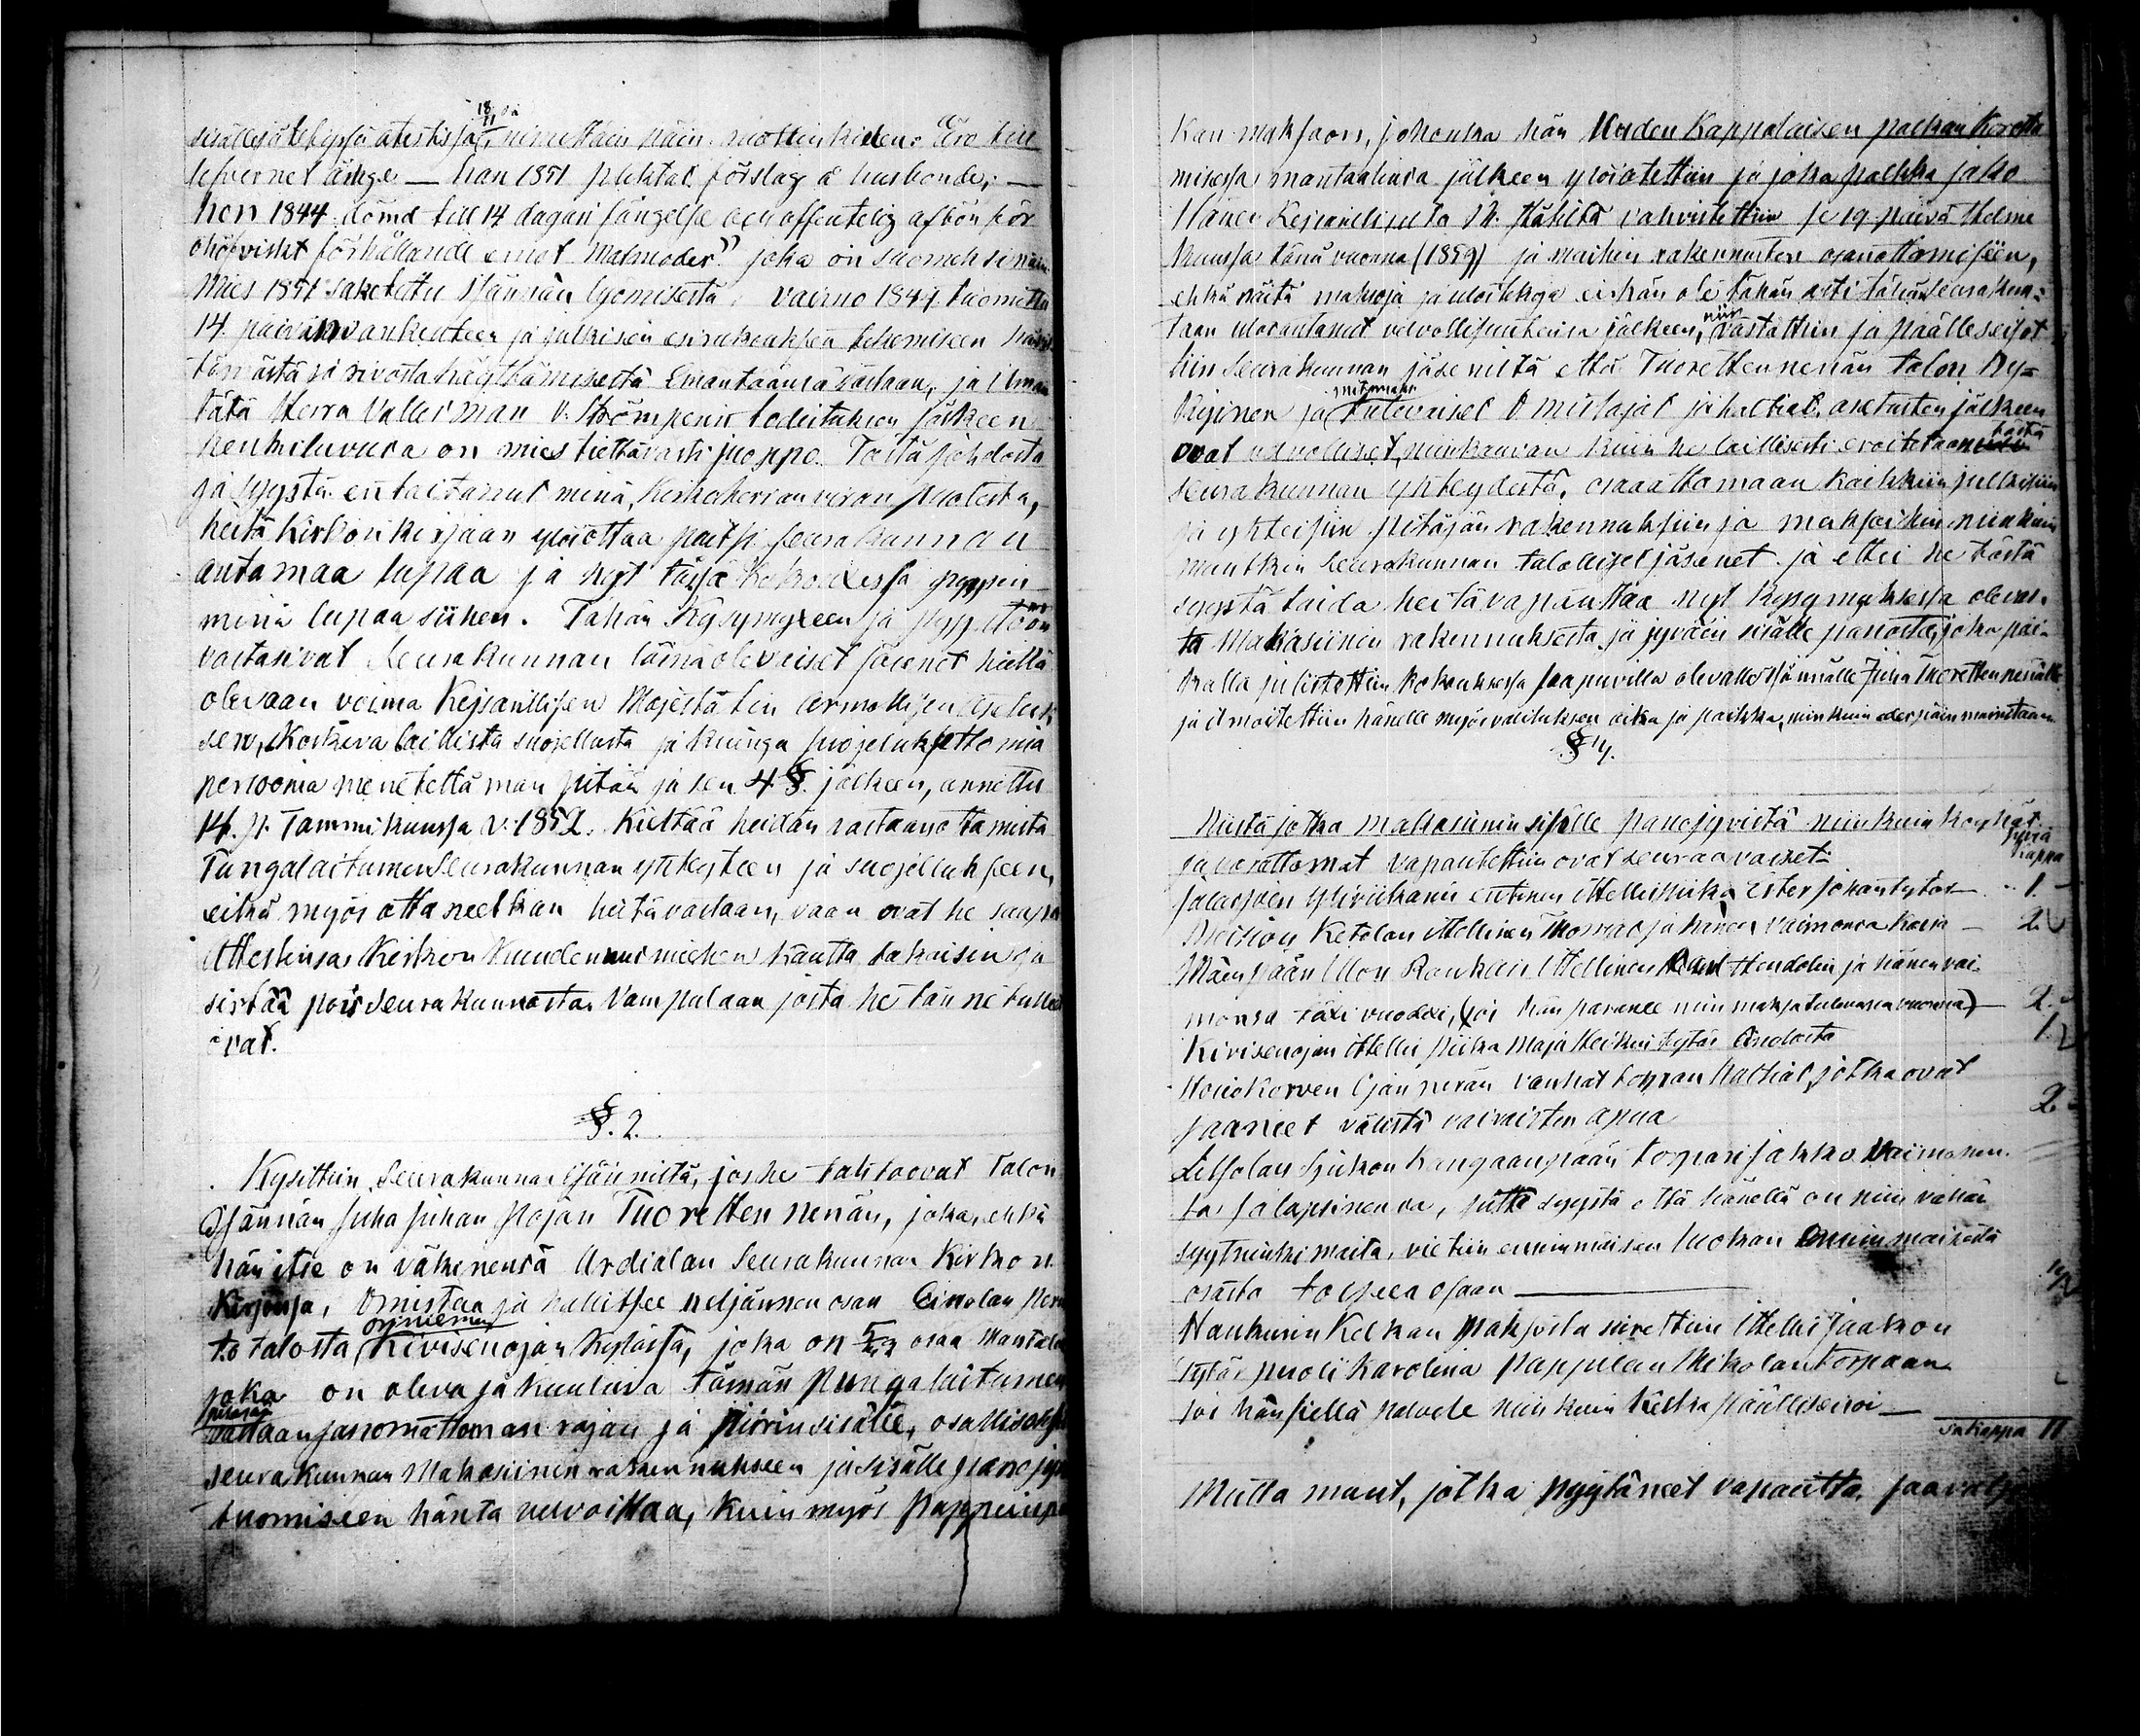 nimittäin näin ruottin kielen: Äro till
lefvernet ärlige — han 1851 pliktat för slag å husbonde; —
hon 1844 dömd till 14 dagars fängelse och offentelig afbön för
ohöfviskt förhållande emot Matmoder" joka on suomeksi näin
Mies 1851 sakotettu Isännän lyömisestä, vaimo 1844 tuomittu
14 päivän vankeuteen ja julkisen esirukouksen tekemiseen
ja rivosta käyttämisestä Emäntäänsä vastaan, ja ilman
tätä Herra Vallesman v. Strömpenin todistuksen jälkeen
henkiluvura on mies tiettävästi juoppo. Tästä johdosta
ja syystä en taitanut minä, Kirkoherran viran puolesta,
heitä Kirkonkirjaan ylösottaa paitsi seurakunnan
antamaa lupaa ja nyt tässä kokouxessa pyysin
minä lupaa siihen. Tähän kysymyxeen ja pyyntöön
vastasivat Seurakunnan läsnäolevaiset jäsenet heillä
olevaan voima Keisarillisen Majestätin Armollisen Asetuk
sen, Koskeva laillista suojellusta ja kuinga suojeluksettomia
persoonia menetettämän pitää ja sen 4 §. jälkeen, annettu
14. p. Tammikuussa v. 1852. Kieltää heidän vastaanottamista
Pungalaitumen Seurakunnan yhteyteen ja suojelluhseen,
eikä myös otta neetkän heitä vastaan, vaan ovat he saapa
Attestinsa Kirkon Kuudennusmiehen kautta takaisin ja
siirtää pois seurakunnasta Vampulaan josta he tänne tulleet
ovat.
§. 2.
Kysyttiin Seurakunnan Isänniltä, jos he tahtoovat Talon
Isännän Juha Juhan pojan Tuorettennenän, joka, ehkä
hän itse on väkinensä Urdialan Seurakunnan Kirkon
Kirjoissa, Omistaa ja hallitsee neljännen osan Einolan
to talosta Kivisenojan Kylässä, joka on osaa Mantalia
joka on oleva ja kuuluva tämän Pungalaitumen
pitäjän
vallaan sanomattoman rajan ja piirin sisälle, osallisuhsen
seurakunnan Makasiinin rakennukseen ja sisälle pano jyvä
tuomiseen hänta velvoittaa, kuin myös Pappein pa
Kan maksaon, johonka hän Uuden Kappalaisen palkan Korotta
misessa mantaalinsa jälkeen ylösotettiin ja joka palkka jako
Hänen Keisarilliselta M. tähiltä vahvistettiin se 19 päivä Helme
kuussa tänä vuonna (1859) ja muihin rakennusten osanottamiseen,
ehkä näitä maksoja ja ulostekoja ei hän ole tähän asti tähän seurakun:
taan ulosantanut velvollisuutensa jälkeen, niin vastattiin ja päälleseisot
tiin Seurakunnan jäseniltä että Tuorettennenän talon Ny=
kyjinen ja tulevaiset Omistajat ja haltiat, asetusten jälkeen
ovat velvolliset, niinkauvan kuin he laillisesti eroitetaan tästä
seurakunnan yhteydestä, osaaottamaan kaikkiin julkisiin
ja yhteisiin pitäjän rakennuksiin ja maksoihin niinkuin
muutkin Seurakunnan talolliset jäsenet ja ettei he tästä
syystä taida heitä vapauttaa nyt kysymyksessä oleves.
ta Makasiinin rakennuksesta ja jyväin sisälle panosta, joka päi-
kalla julistettiin kokouksessa saapuvilla olevalle Isännälle Juha Tuorettennenälle
ja ilmoitettiin hänelle myös valituksen aika ja paikka, niinkuin edespäin mainitaan.
§
Niistä jotka makasiinin sisälle panojyvistä niinkuin köyhät
ja varattomat vapautettiin ovat seuraavaiset: jyviä kappa
entinen Ittellispiika Ester Johantytär — 1.
Ketolan Ittellinen Thomas ja hänen vaimonsa Kaisa — 2.
Mäenpään Ulon Raukan Ittellinen Hendolin ja hänen vai-
monsa täxi vuodexi, (jos hän paranee niin maksa tulevana vuonna) — 2.
Kivisenojan Ittellis piika Maja Heikintytär Eindosta 1.
Honiokorven Ojan perän vanhat torpan haltiat, jotka ovat
saaneet välistä vaivaisten apua 2.
Kangaanpään torpari Jakko Vaimonen.
sa ja lapsinensa, siitä syystä että hänellä on niin vähän
maita, vietiin ensinmäisen luokan Ensinmaisestä
osasta toiseen osaan —
Hankurin Kelkan maksoista siirettiin Ittellis Jaakon
tytär puoli Karolina Pappilan Mikolan torpaan
jos hän siellä palvele niin kuin Kelka päälleseisoi —
Sa kappa 11
Mutta muut, jotka pyytäneet vapautta,